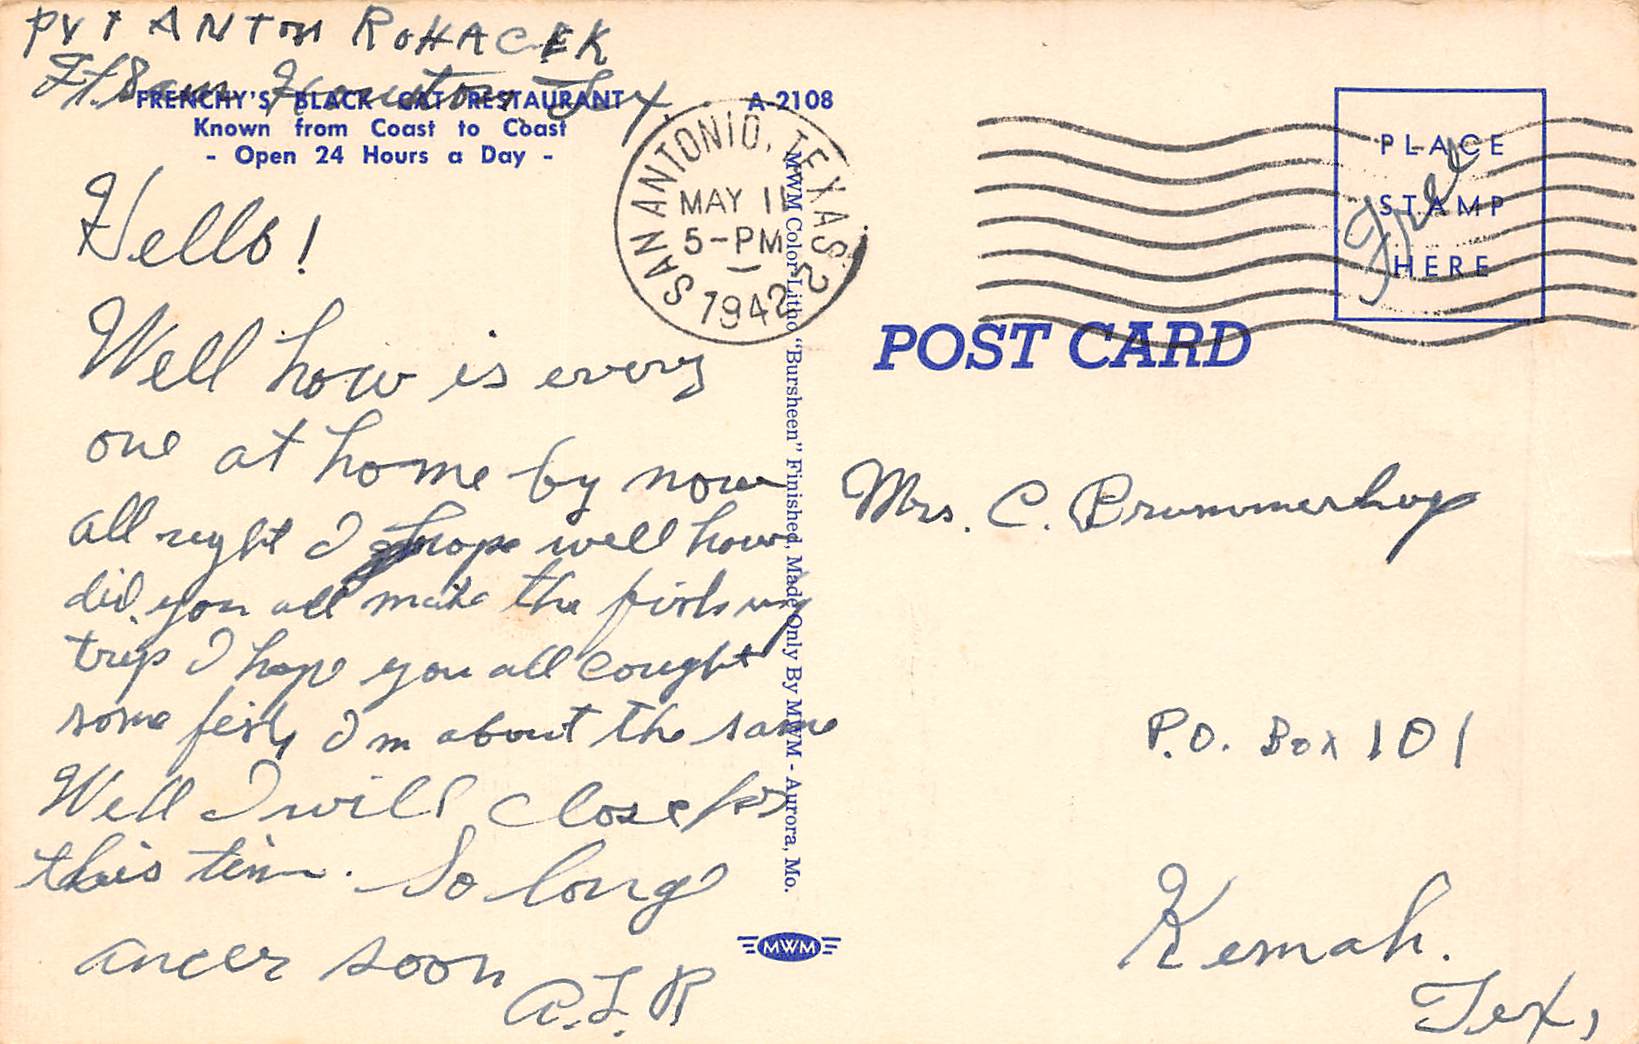 PVT ANTON ROHACEK
Ft. Sam Houston, Tex.
FRENCHY'S BLACK CAT RESTAURANT
Known from Coast to Coast
- Open 24 Hours a Day -
A-2108
Hello!
Well how is every
one at home by now
all right I hope well how
did you all make the fishing
trip I hope you all cought
some fish, I'm about the same
Well I will close for
this time. So long
ancer soon
A.L.R
SAN ANTONIO, TEXAS 2
MAY 11
5-PM
1942
MWM Color-Litho "Bursheen" Finished, Made Only By MWM - Aurora, Mo.
MWM
PLACE
STAMP
HERE
Free
POST CARD
Mrs. C. Brummerhop
P.O. Box 101
Kemah.
Tex,